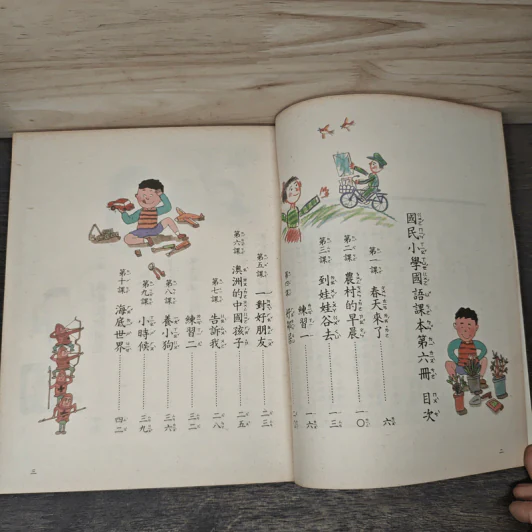 國民小學國語課本第六冊 目次
第一課 春天來了……六
第二課 農村的早晨……一〇
第三課 到娃娃谷去……一三
練習一……一六
二
第五課 一對好朋友……二三
第六課 澳洲的中國孩子……二五
第七課 告訴我……二八
練習二……三二
第八課 養小狗……三六
第九課 小時候……三九
第十課 海底世界……四二
三